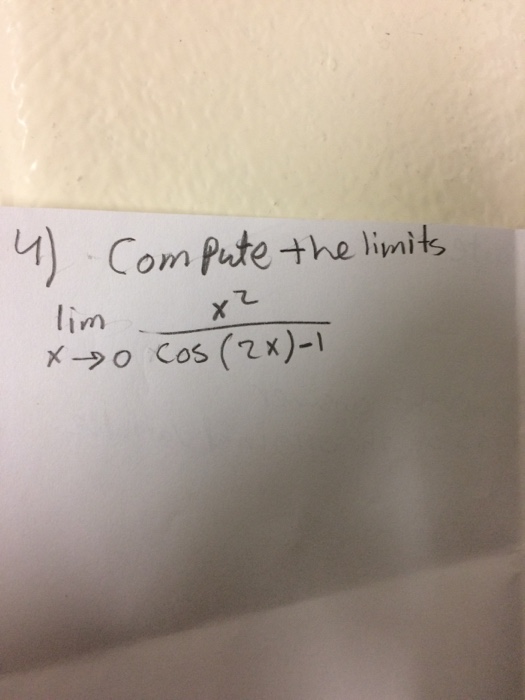 4) Compute the limits
lim x²
x→0 cos(2x)-1